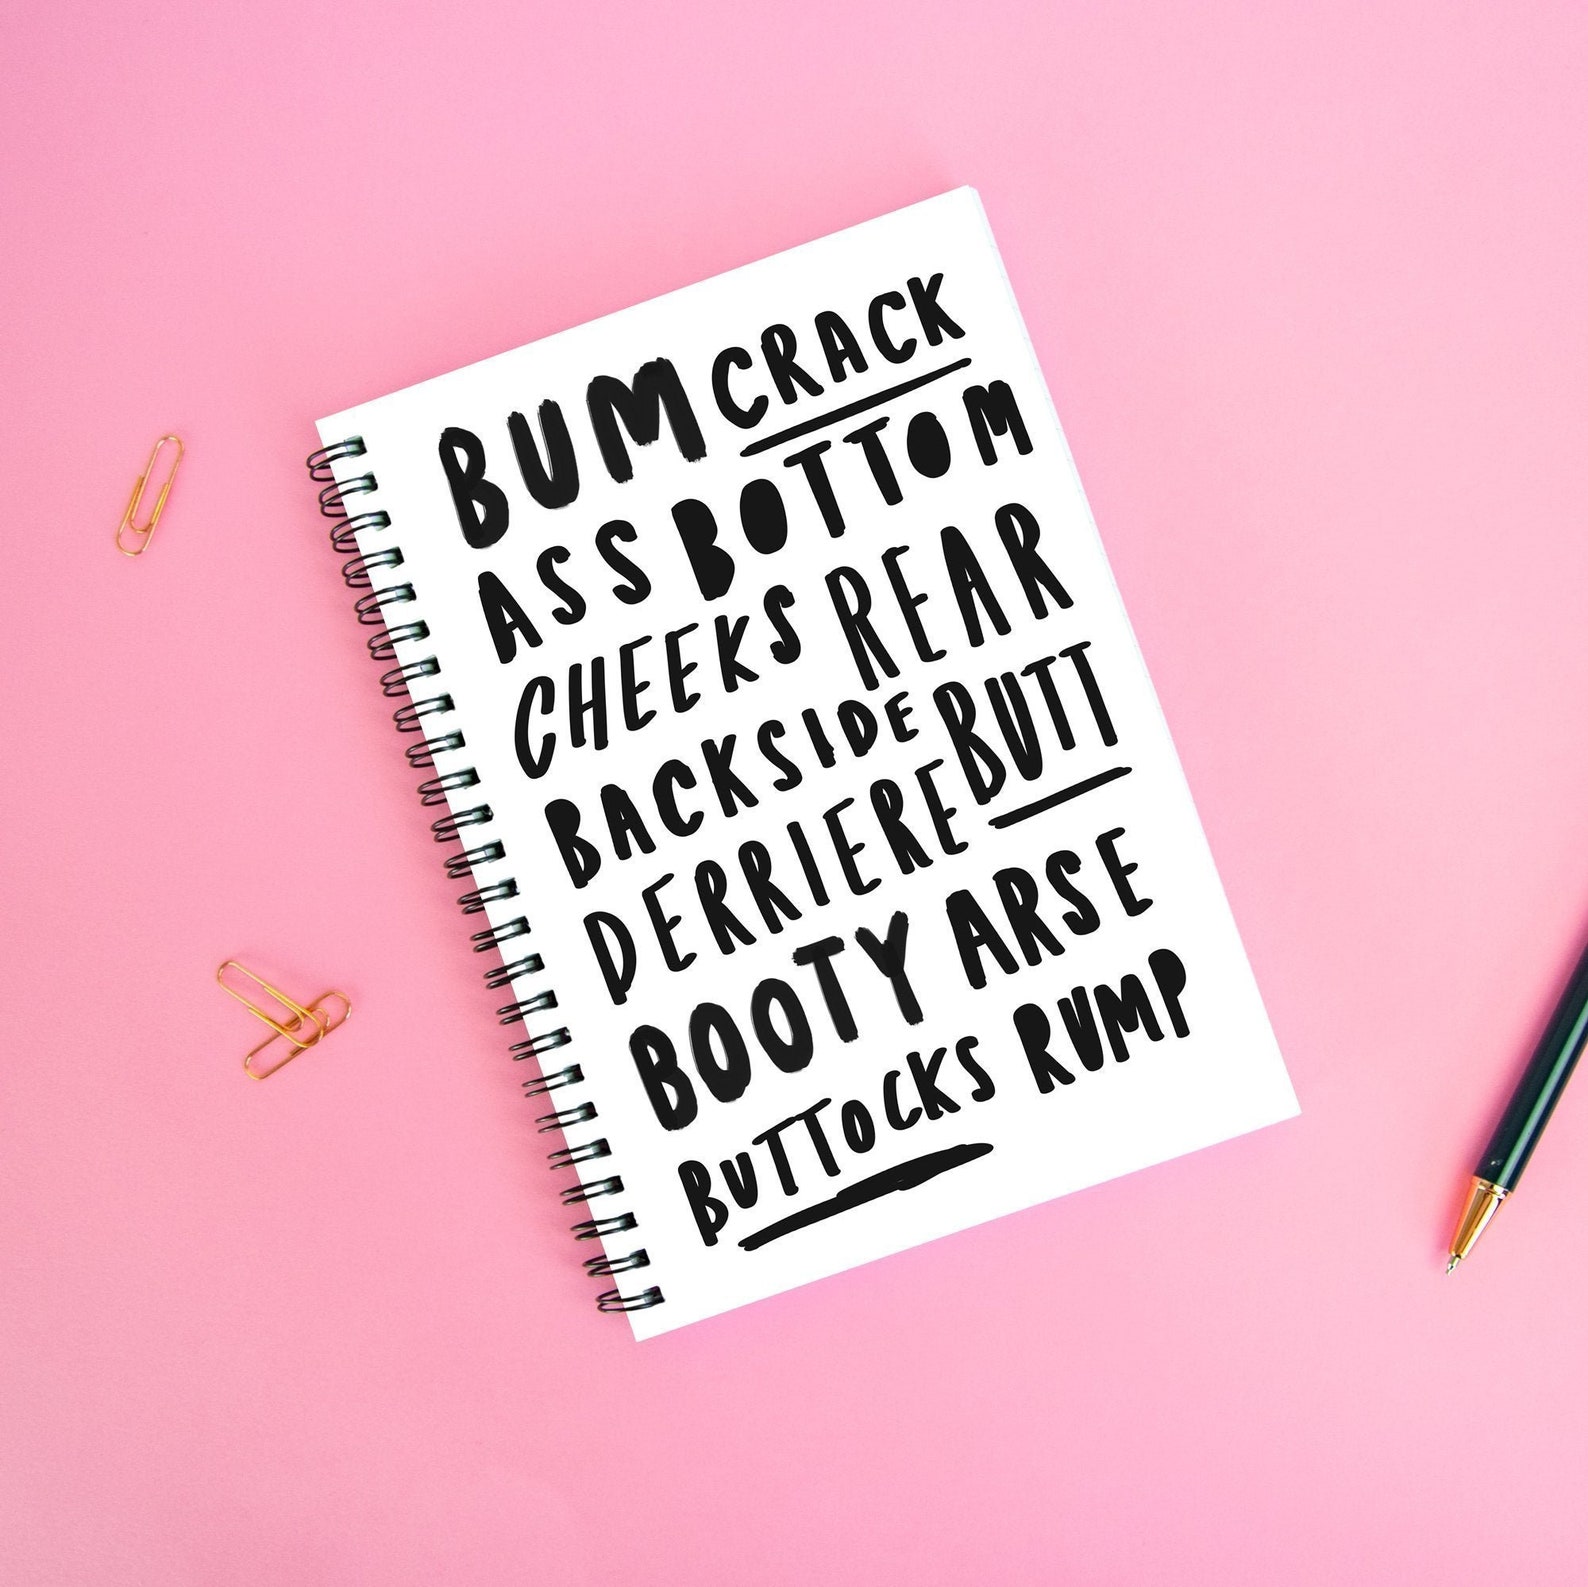 BUM CRACK
ASS BOTTOM
CHEEKS REAR
BACKSIDE BUTT
DERRIERE
BOOTY ARSE
BUTTOCKS RUMP